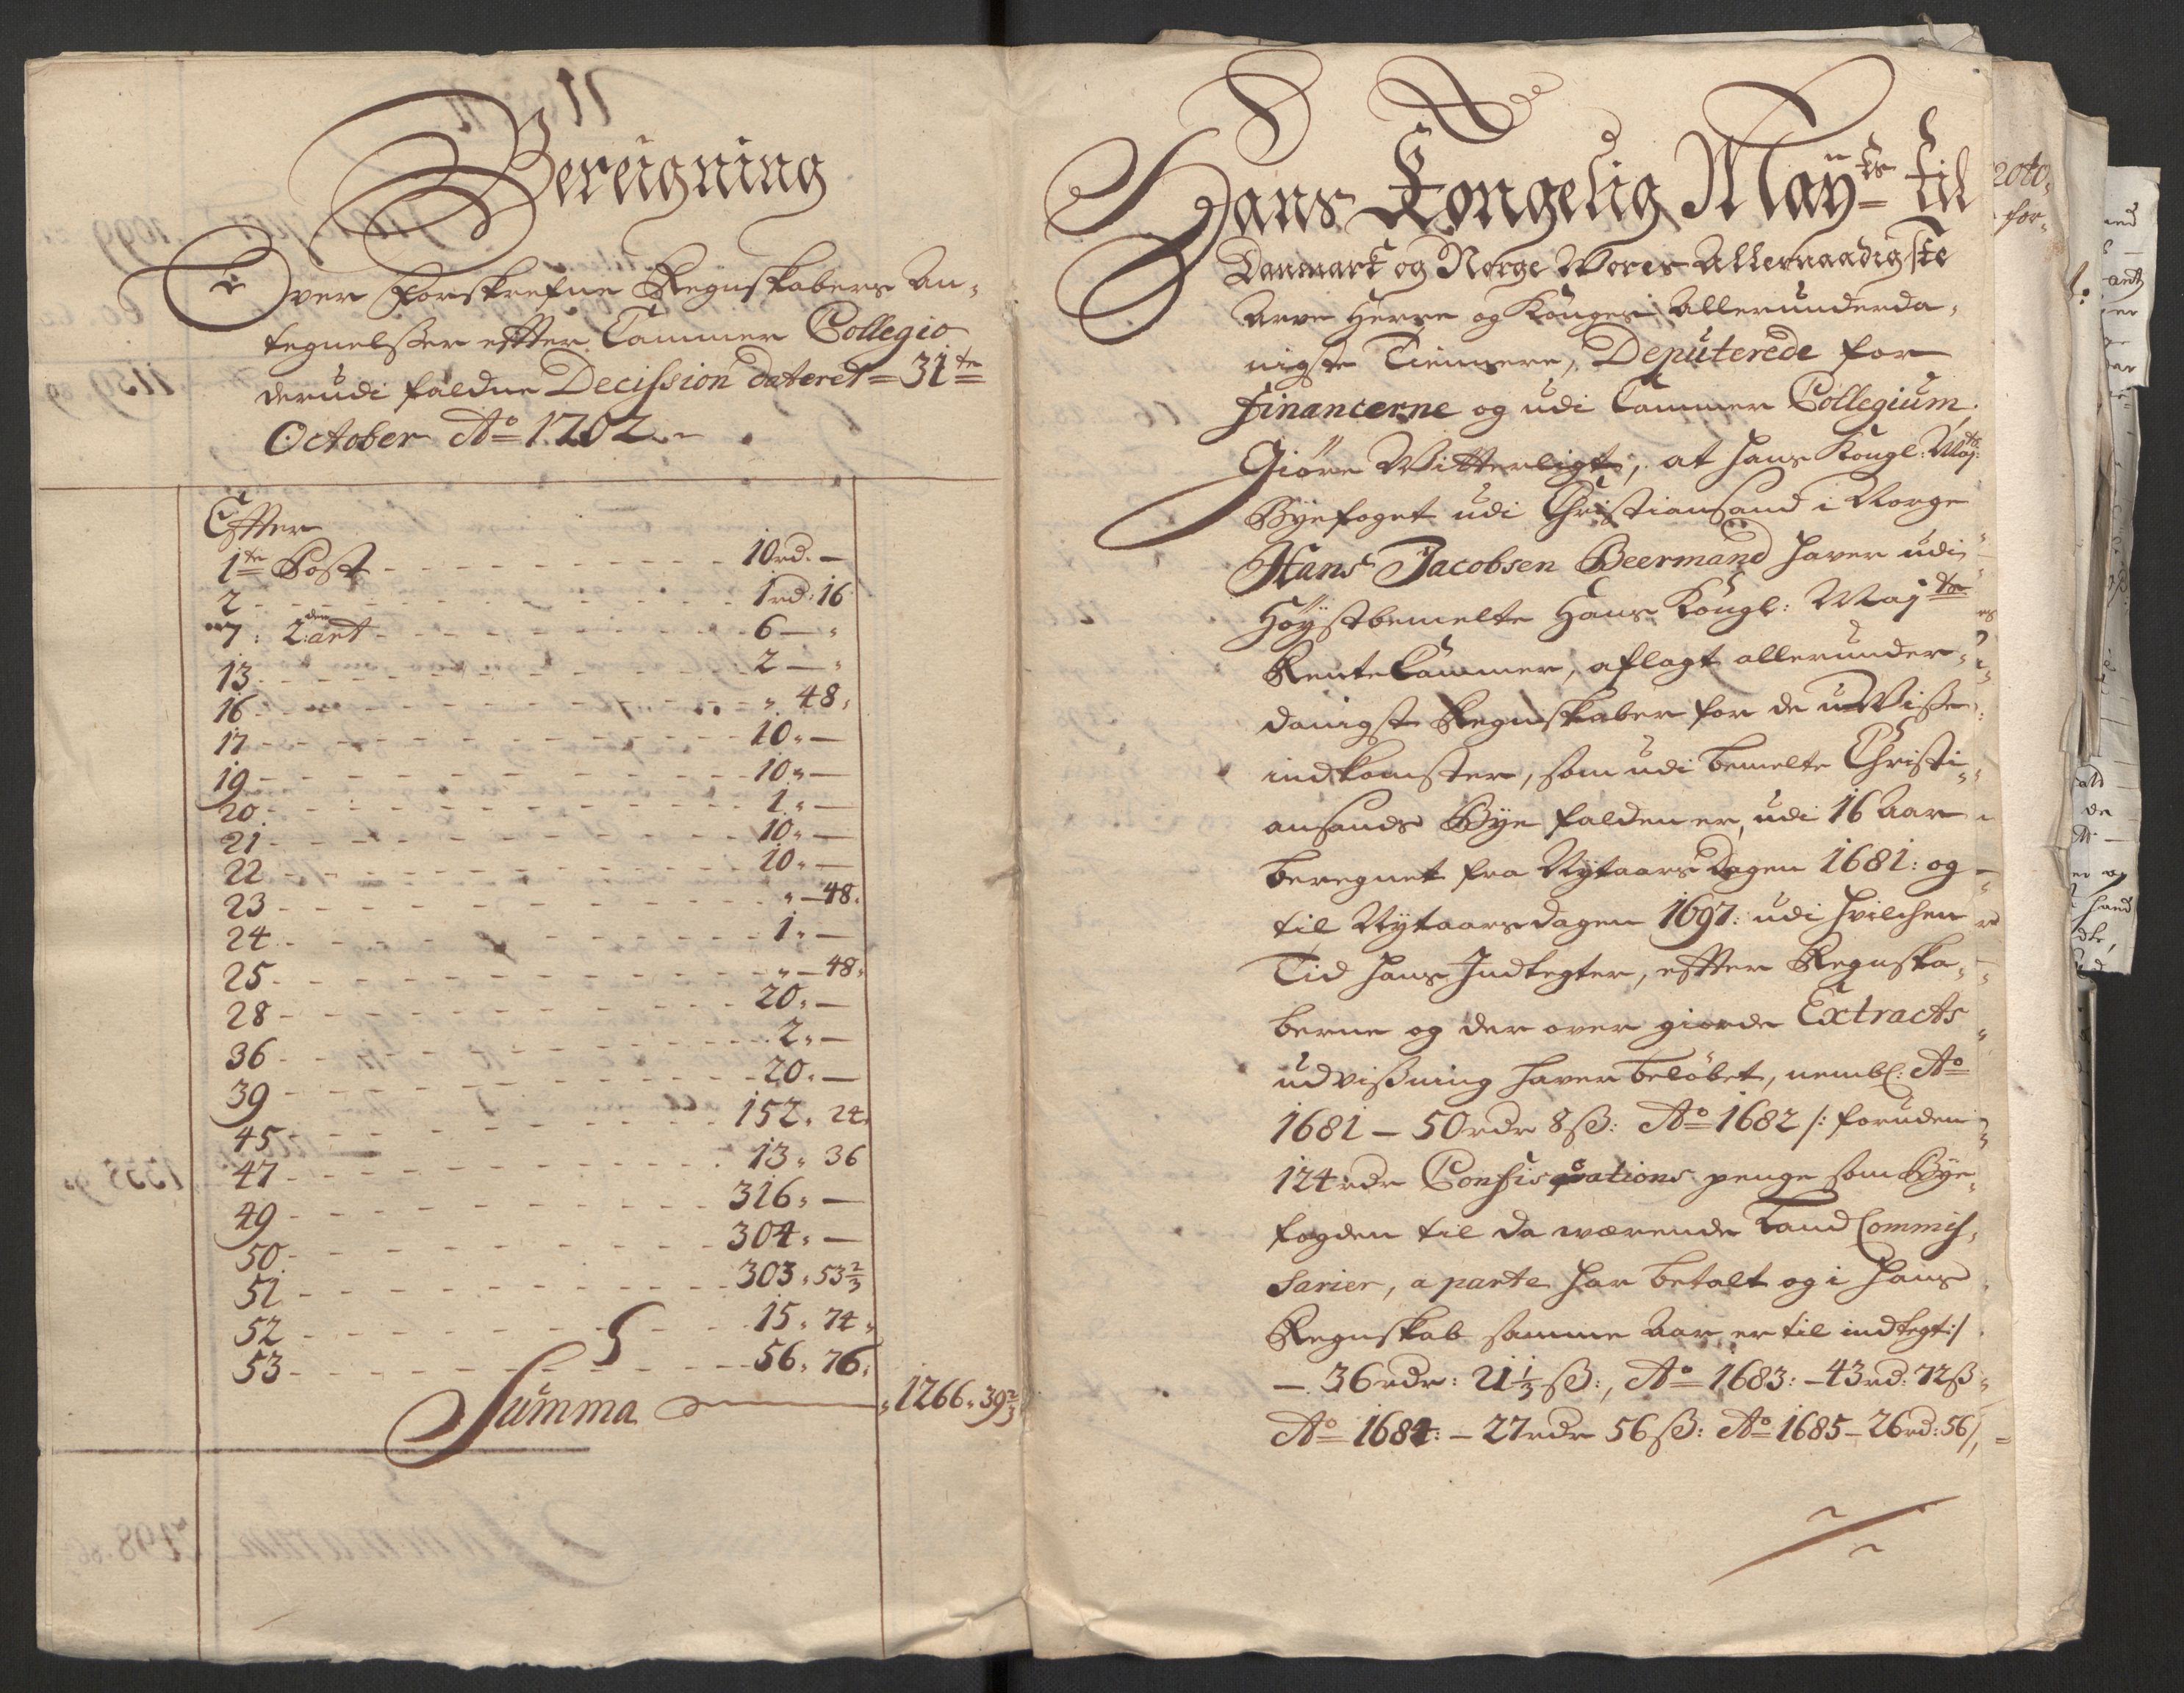 Bereigning
Over Forskrefne Regnskabers An-
tegnelßer effter Cammer Collegio
derudi faldne Decission dateret 31te
October Ao 1702.
Effter
1te Post - 10 rd. —
2 - 1 rd: 16
7: 2den art - 6 — "
13 - 2 — "
16 - " 48:
17 - 10 " —
19 - 10 " —
20 - 1 " —
21 - 10 " —
22 - 10 " —
23 - " — 48.
24 - 1 " —
25 - " — 48:
28 - 20 " —
36 - 2 " —
39 - 20 " —
45 - 152 " 24.
47 - 13 " 36
49 - 316 " —
50 - 304 " —
51 - 303 " 53 2/3
52 - 15 " 74 "
53 - 56 " 76:
Summa — 1266 " 39 2/3
Hans Kongelig Mayts til
Danmark og Norge Vores Allernaadigste
Arve Herre og Konges Allerunderda-
nigste Tiennere, Deputerede for
Financerne og udi Cammer Collegium,
Giöre Vitterligt, at hans Kongl: Mayts
Byefoget udi Christiansand i Norge
Hans Jacobsen Beermand haver udi
Höystbemelte Hans Kongl: Majts
Rente Cammer, aflagt allerunder-
danigst Regnskaber for de uVisse
indkomster, som udi bemelte Christi-
ansands Bye falden er, udi 16 Aar
beregnet fra Nytaars Dagen 1681: og
til Nytaarsdagen 1697: udi hvilchen
Tid hans Indtegter, effter Regnska-
berne og der over giorde Extracts
udvißning haver belöbet, nembl: Ao
1681 — 50 rdr 8 ß: Ao 1682 /: foruden
124 rdr Confisquations penge som Bye-
fogden til da værende Land Commis-
sarier, a parte har betalt og i hans
Regnskab samme Aar er til indtegt :/
— 36 rdr: 21 1/3 ß:, Ao 1683: — 43 rd: 72 ß
Ao 1684: — 27 rdr 56 ß: Ao 1685 — 26 rd: 56 /,